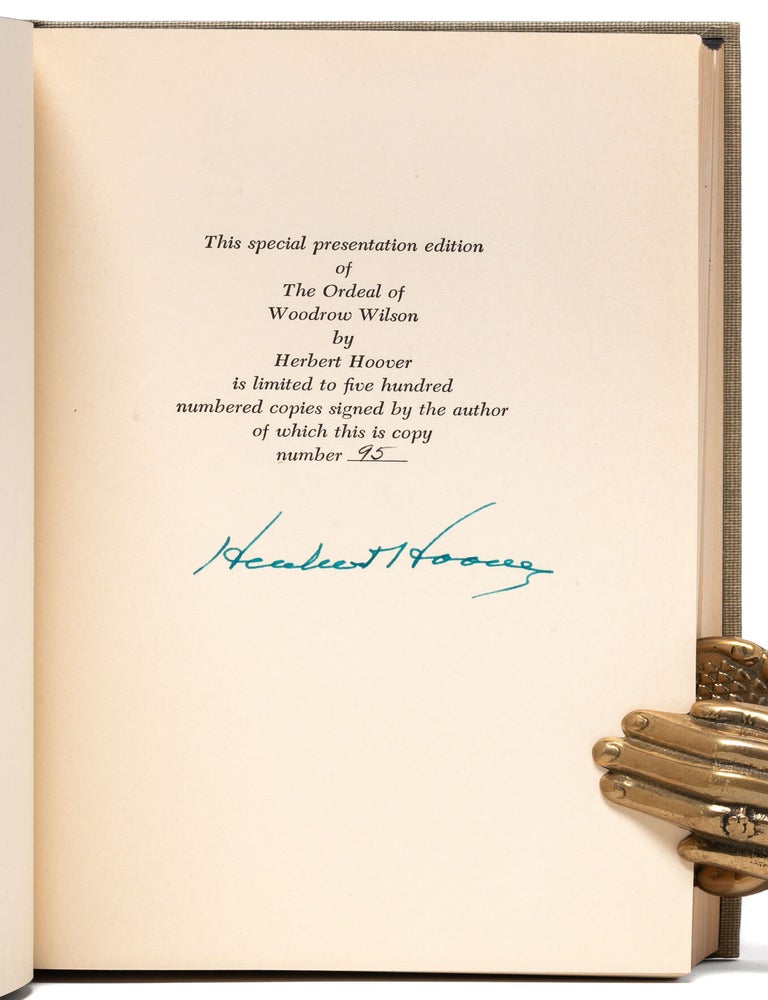 This special presentation edition
of
The Ordeal of
Woodrow Wilson
by
Herbert Hoover
is limited to five hundred
numbered copies signed by the author
of which this is copy
number 95
Herbert Hoover